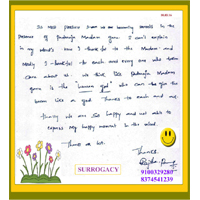 So much positive I am we are becoming parents in the
presence of Padmaja Madam garu I can't explain
in my words. I am thankful to the Madam and
Media, I thankful to each and every one who taken
care about us. we think Dr Padmaja Madam
garu is the "human god" who can be give the
boon like a god. Thanks to each and me.
Really we are so happy and not able to
express my happy moment in the words.
Thanks a lot.
Thanks
SURROGACY
9100329280
8374541239